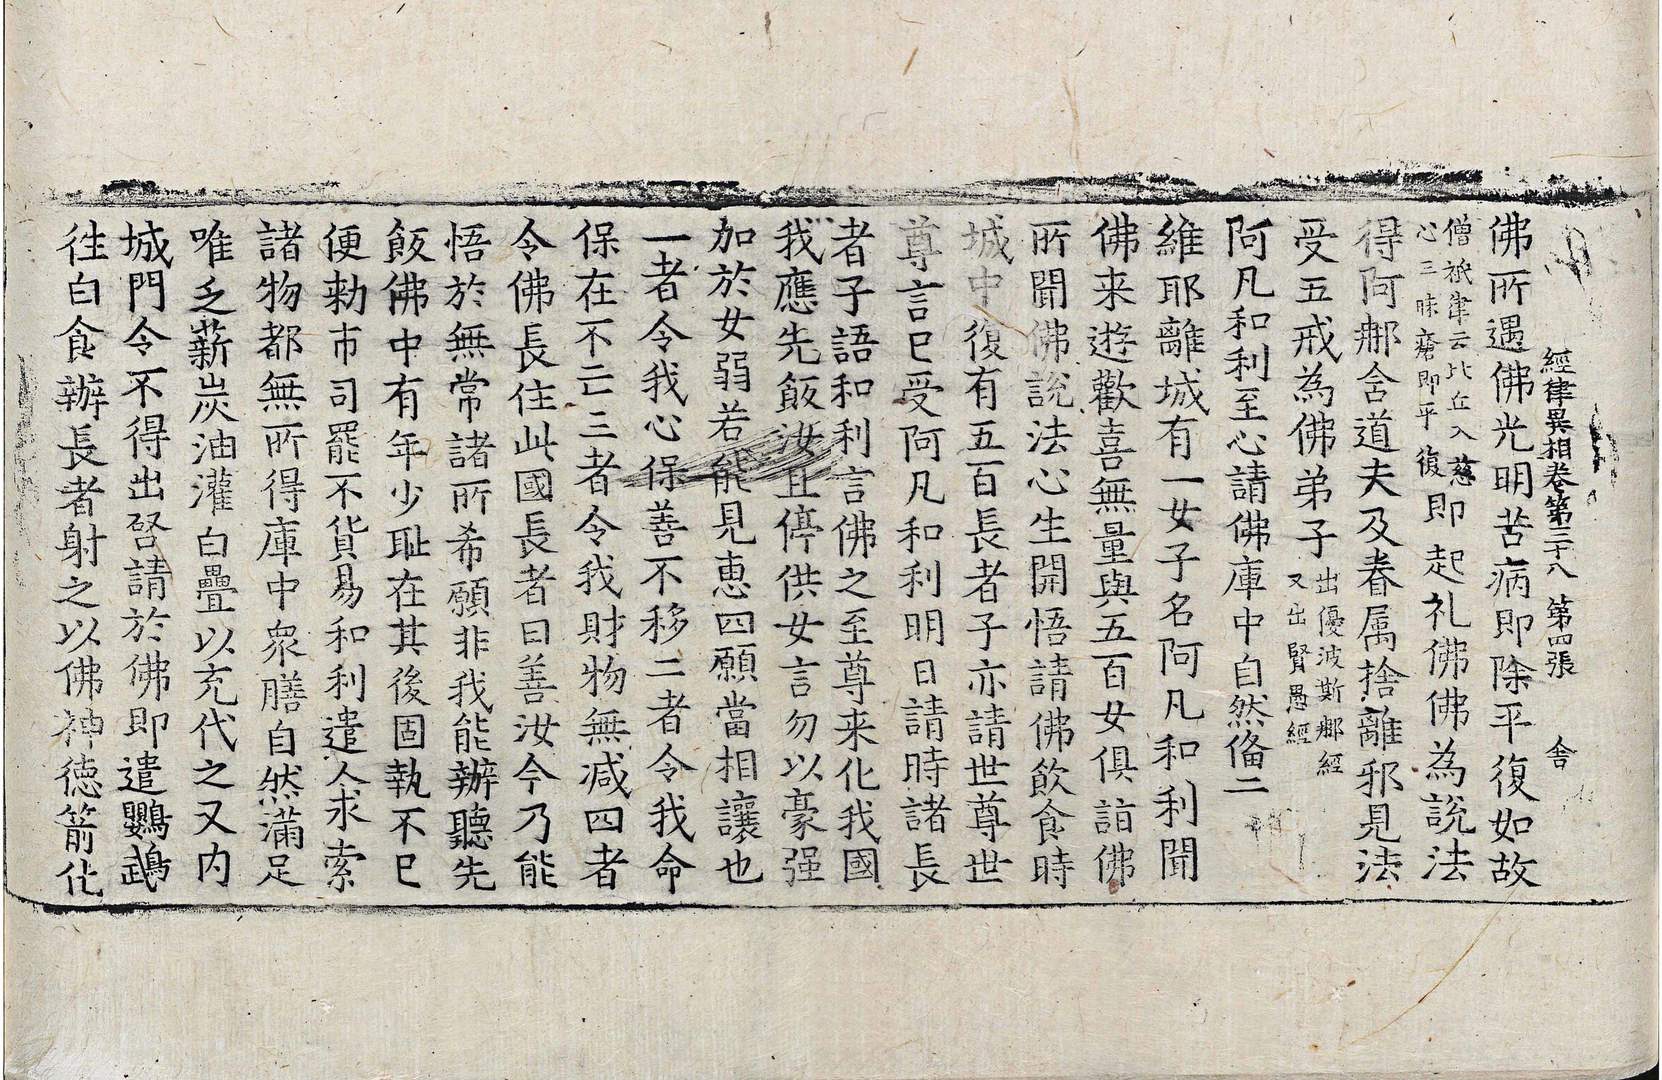 經律異相卷第三十八　第四張　舍
佛所遇佛光明苦病即除平復如故
僧祇律云比丘入慈
心三昧瘡即平復
即起礼佛佛為說法
得阿𨚗舍道夫及眷属捨離邪見法
受五戒為佛弟子
出優波斯𨚗經
又出賢愚經
阿凡和利至心請佛庫中自然俻二
維耶離城有一女子名阿凡和利聞
佛来遊歡喜無量與五百女俱詣佛
所聞佛說法心生開悟請佛飲食時
城中復有五百長者子亦請世尊世
尊言已受阿凡和利明日請時諸長
者子語和利言佛之至尊来化我國
我應先飯汝且停供女言勿以豪强
加於女弱若能見惠四願當相讓也
一者令我心保善不移二者令我命
保在不亡三者令我財物無減四者
令佛長住此國長者曰善汝今乃能
悟於無常諸所希願非我能辦聽先
飯佛中有年少耻在其後固執不已
便勑市司罷不貨易和利遣人求索
諸物都無所得庫中衆膳自然滿足
唯乏薪炭油灌白疊以充代之又内
城門令不得出啓請於佛即遣鸚鵡
往白食辦長者射之以佛神德箭化